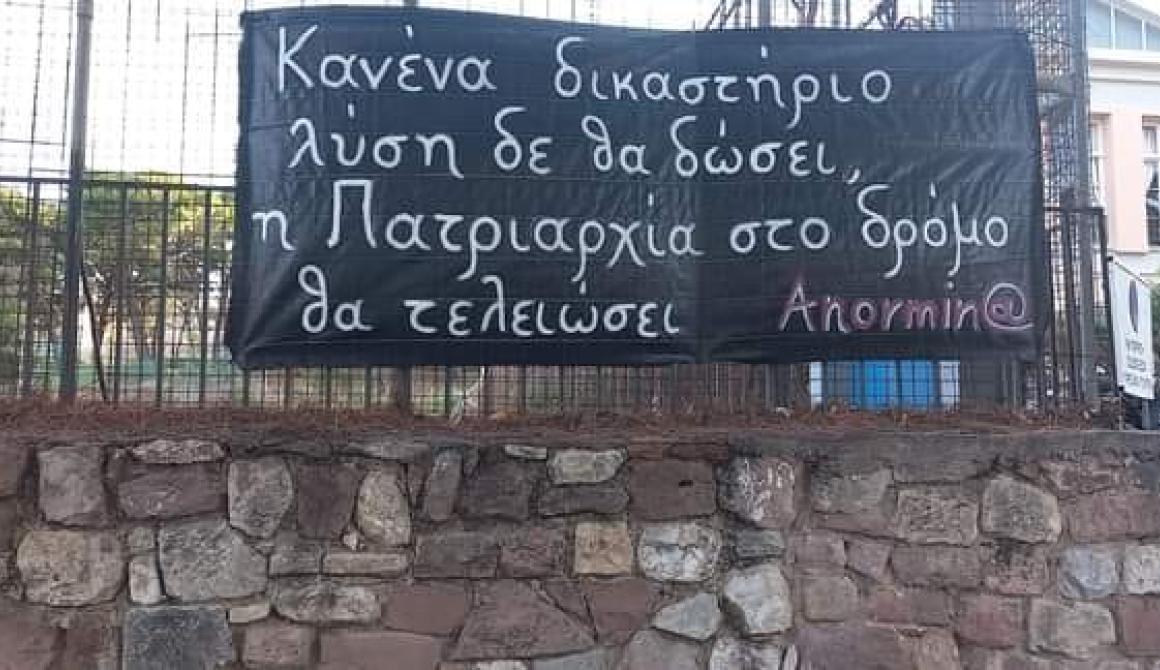 Κανένα δικαστήριο
λύση δε θα δώσει,
η Πατριαρχία στο δρόμο
θα τελειώσει Anormin@